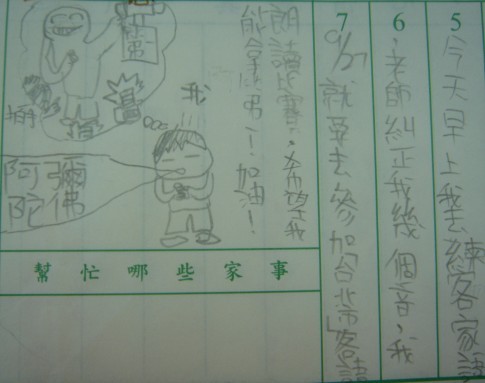 5
今天早上我去練客家語
6
,老師糾正我幾個音,我
7
9/27就要去參加台北市客語
朗讀比賽,希望我
能拿第一!加油!
我
拍手
拍
阿彌
陀佛
幫忙哪些家事